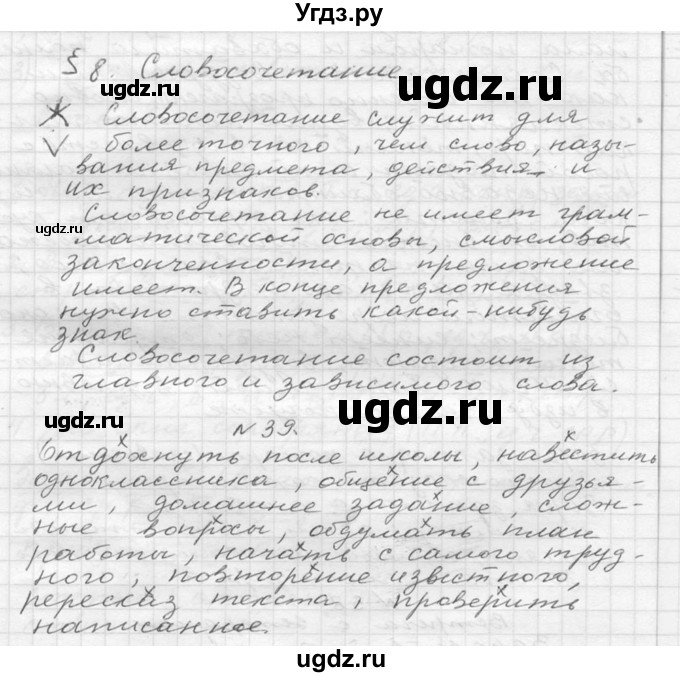 Угдз.ру
§ 8. Словосочетание
ugdz.ru
Словосочетание служит для
более точного, чем слово, назы-
вания предмета, действия и
ugdz.ru
их признаков.
Словосочетание не имеет грам-
ugdz.ru
матической основы, смысловой
законченности, а предложение
имеет. В конце предложения
нужно ставить какой-нибудь
знак.
Словосочетание состоит из
главного и зависимого слова.
ugdz.ru
№ 39.
Отдохнуть после школы, навестить
одноклассника, общение с друзья-
ми, домашнее задание, слож-
ugdz.ru
ные вопросы, обдумать план
работы, начать с самого труд-
ного, повторение известного,
пересказ текста, проверить
ugdz.ru
написанное.
ugdz.ru